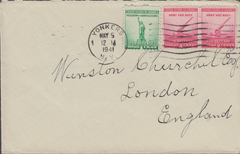 YONKERS
MAY 5
12 M
1941
N.Y.
ARMY AND NAVY ARMY AND NAVY
Winston Churchil Esq
London
England